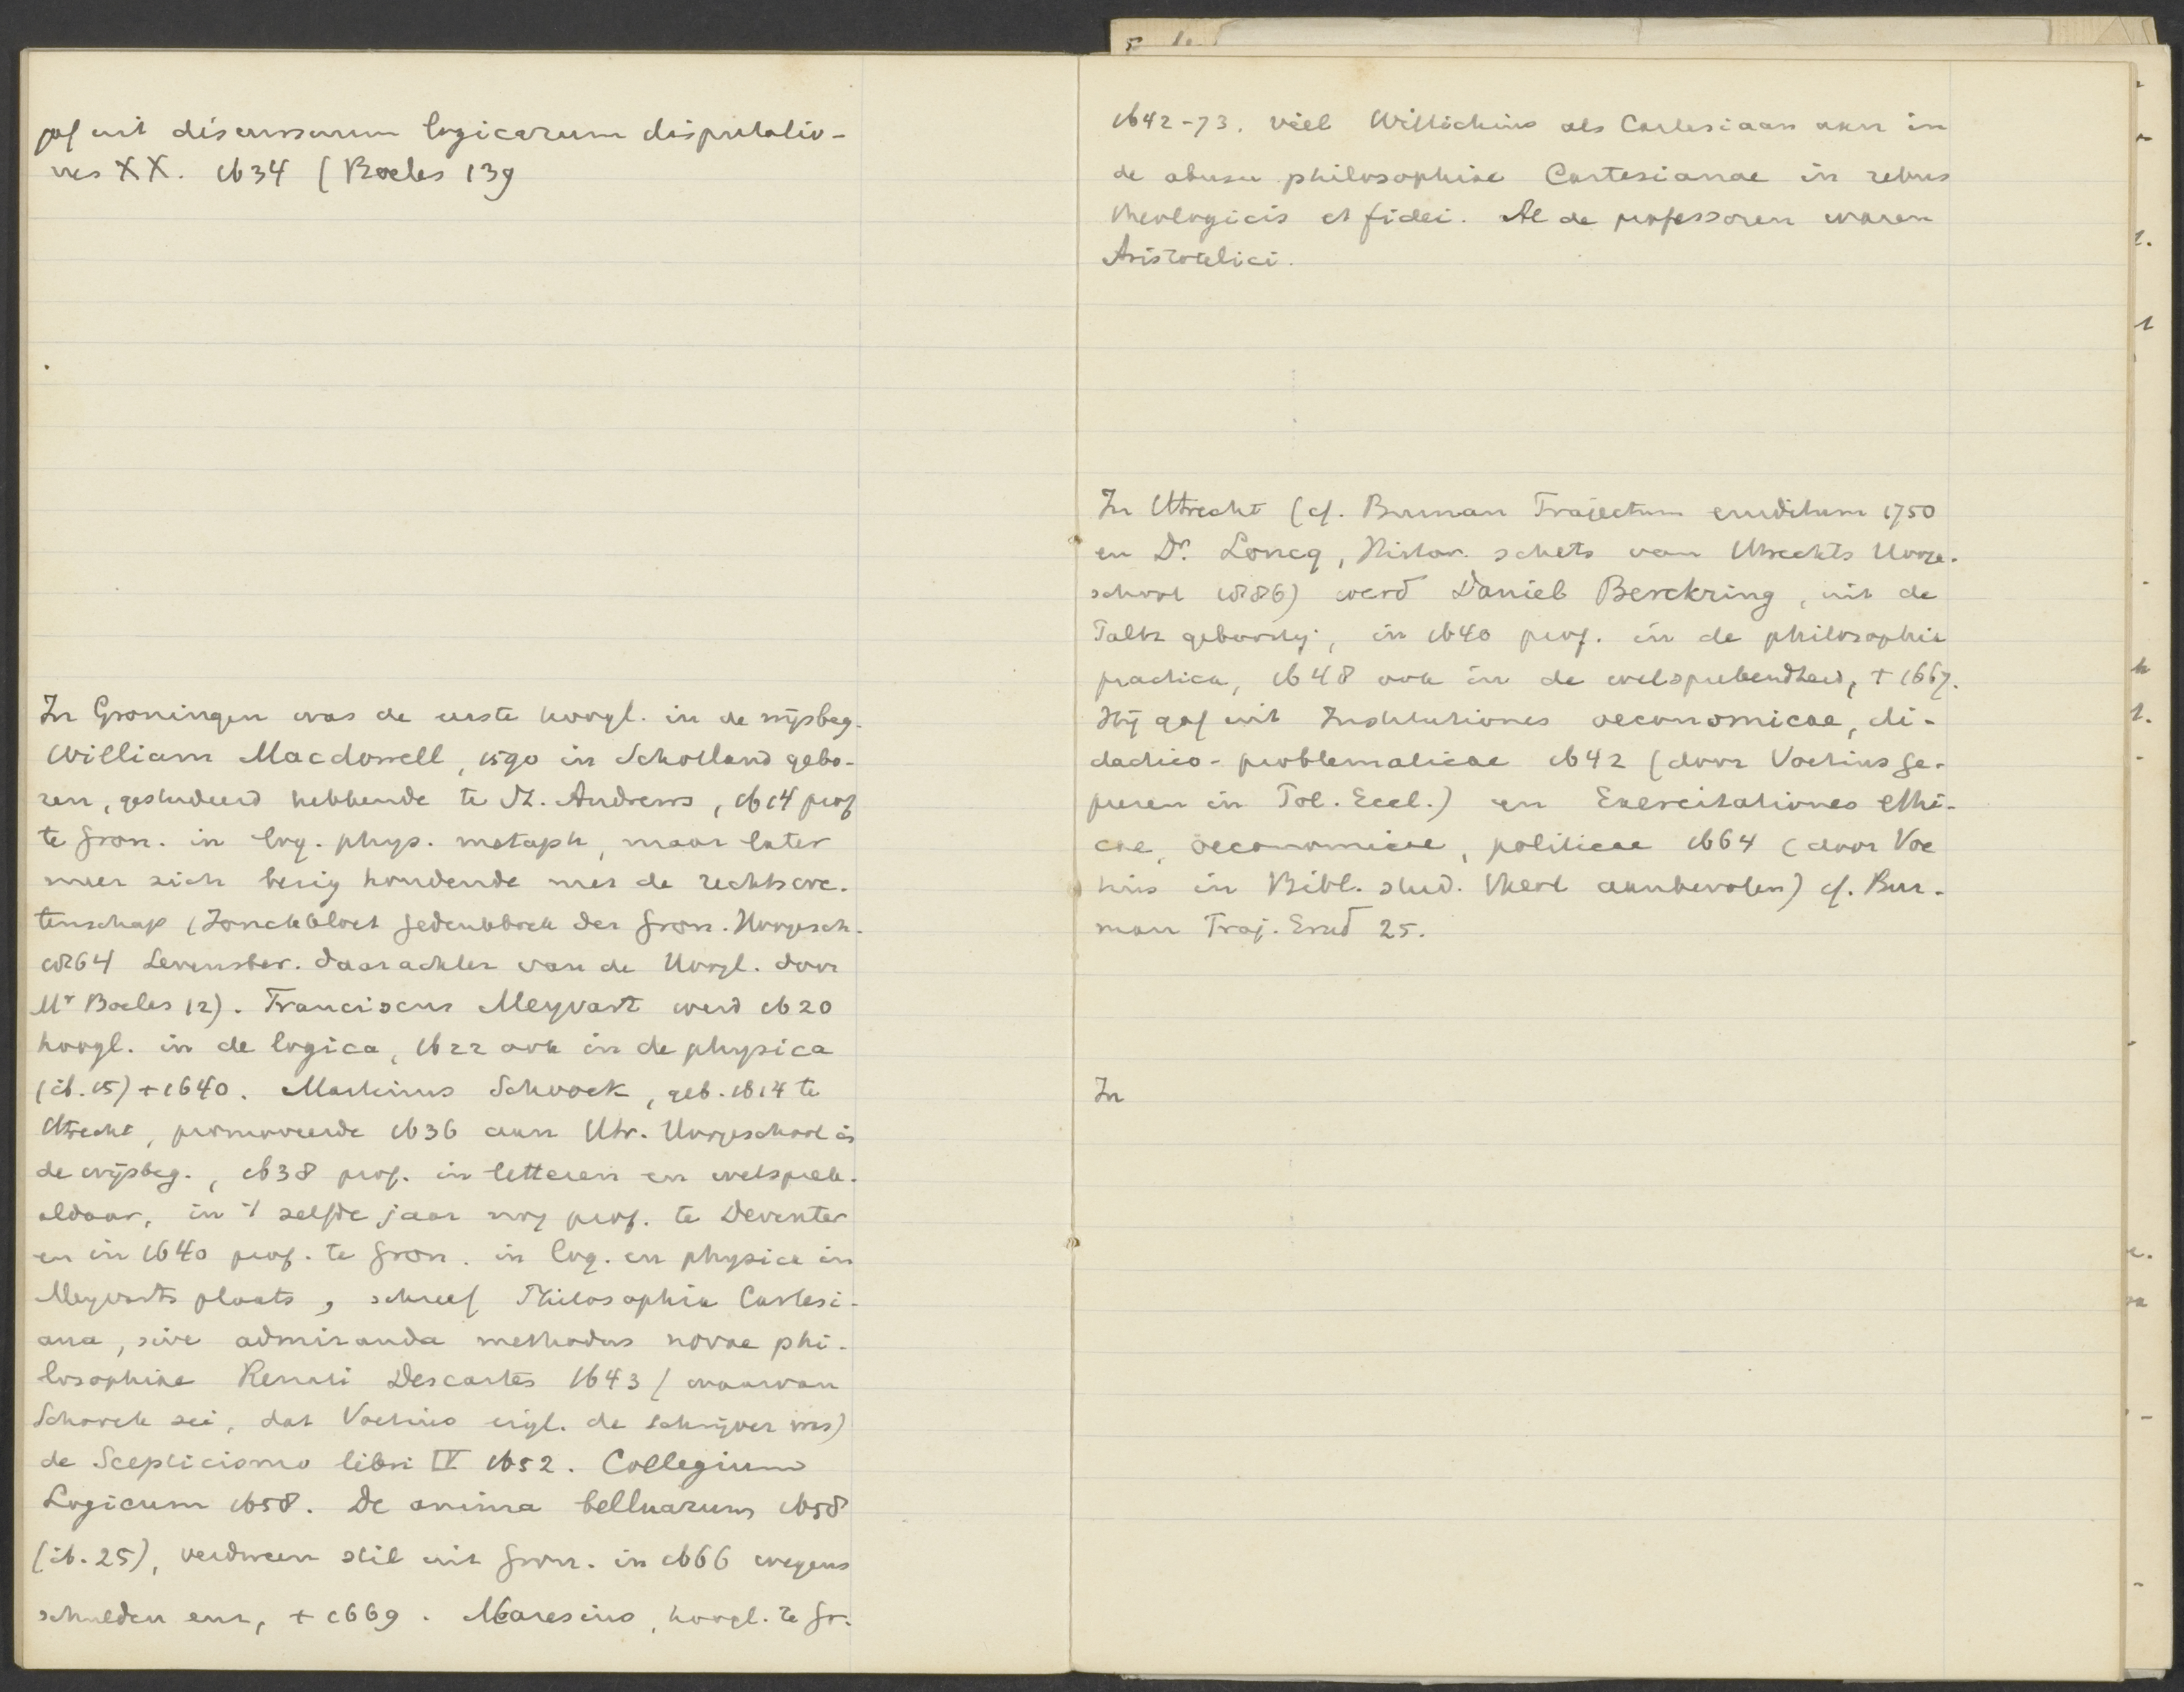 gaf uit discursuum logicarum disputatio-
nes XX. 1634 (Boeles 139
In Groningen was de eerste hoogl. in de wijsbeg.
William Macdowell, 1590 in Schotland gebo-
ren, gestudeerd hebbende te St. Andrews, 1614 prof
te Gron. in log. phys. metaph, maar later
meer zich bezig houdende met de rechtswe-
tenschap (Jonckbloet Gedenkboek der Gron. Hoogesch.
1864 Levensber. daarachter van de Hoogl. door
Mr Boeles 12). Franciscus Meyvart werd 1620
hoogl. in de logica, 1622 ook in de physica
(ib. 15) + 1640. Martinus Schoock, geb. 1614 te
Utrecht, promoveerde 1636 aan Utr. Hoogeschool in
de wijsbeg., 1638 prof. in letteren en welsprek.
aldaar, in 't zelfde jaar nog prof. te Deventer
en in 1640 prof. te Gron. in log. en physica in
Meyvarts plaats, schreef Philosophia Cartesi-
ana, sive admiranda methodus novae phi-
losophiae Renati Descartes 1643 (waarvan
Schoock zei, dat Voetius eigl. de schrijver was)
de Scepticismo libri IV 1652. Collegium
Logicum 1658. De anima belluarum 1658
(ib. 25), verdween stil uit Gron. in 1666 wegens
schulden enz, + 1669. Maresius, hoogl. te Gr.
1642-73. viel Wittichius als Cartesiaan aan in
de abusu philosophiae Cartesianae in rebus
theologicis et fidei. Al de professoren waren
Aristotelici.
In Utrecht (cf. Burman Trajectum eruditum 1750
en Dr. Loncq, Histor. schets van Utrechts Hooge-
school 1886) werd Daniel Berckring, uit de
Paltz geboortig, in 1640 prof. in de philosophia
practica, 1648 ook in de welsprekendheid, + 1667.
Hij gaf uit Institutiones oeconomicae, di-
dactico-problematicae 1642 (door Voetius ge-
prezen in Pol. Eccl.) en Exercitationes ethi-
cae, oeconomicae, politicae 1664 (door Voe
tius in Bibl. stud. theol aanbevolen) cf. Bur-
man Traj. Erud 25.
In